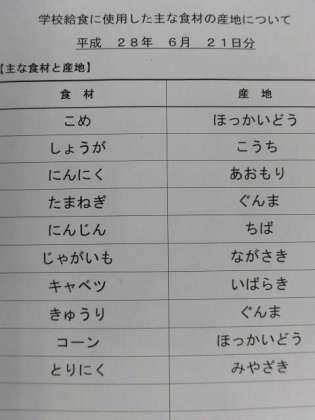 学校給食に使用した主な食材の産地について
平成 28年 6月 21日分
【主な食材と産地】
食材 産地
こめ ほっかいどう
しょうが こうち
にんにく あおもり
たまねぎ ぐんま
にんじん ちば
じゃがいも ながさき
キャベツ いばらき
きゅうり ぐんま
コーン ほっかいどう
とりにく みやざき